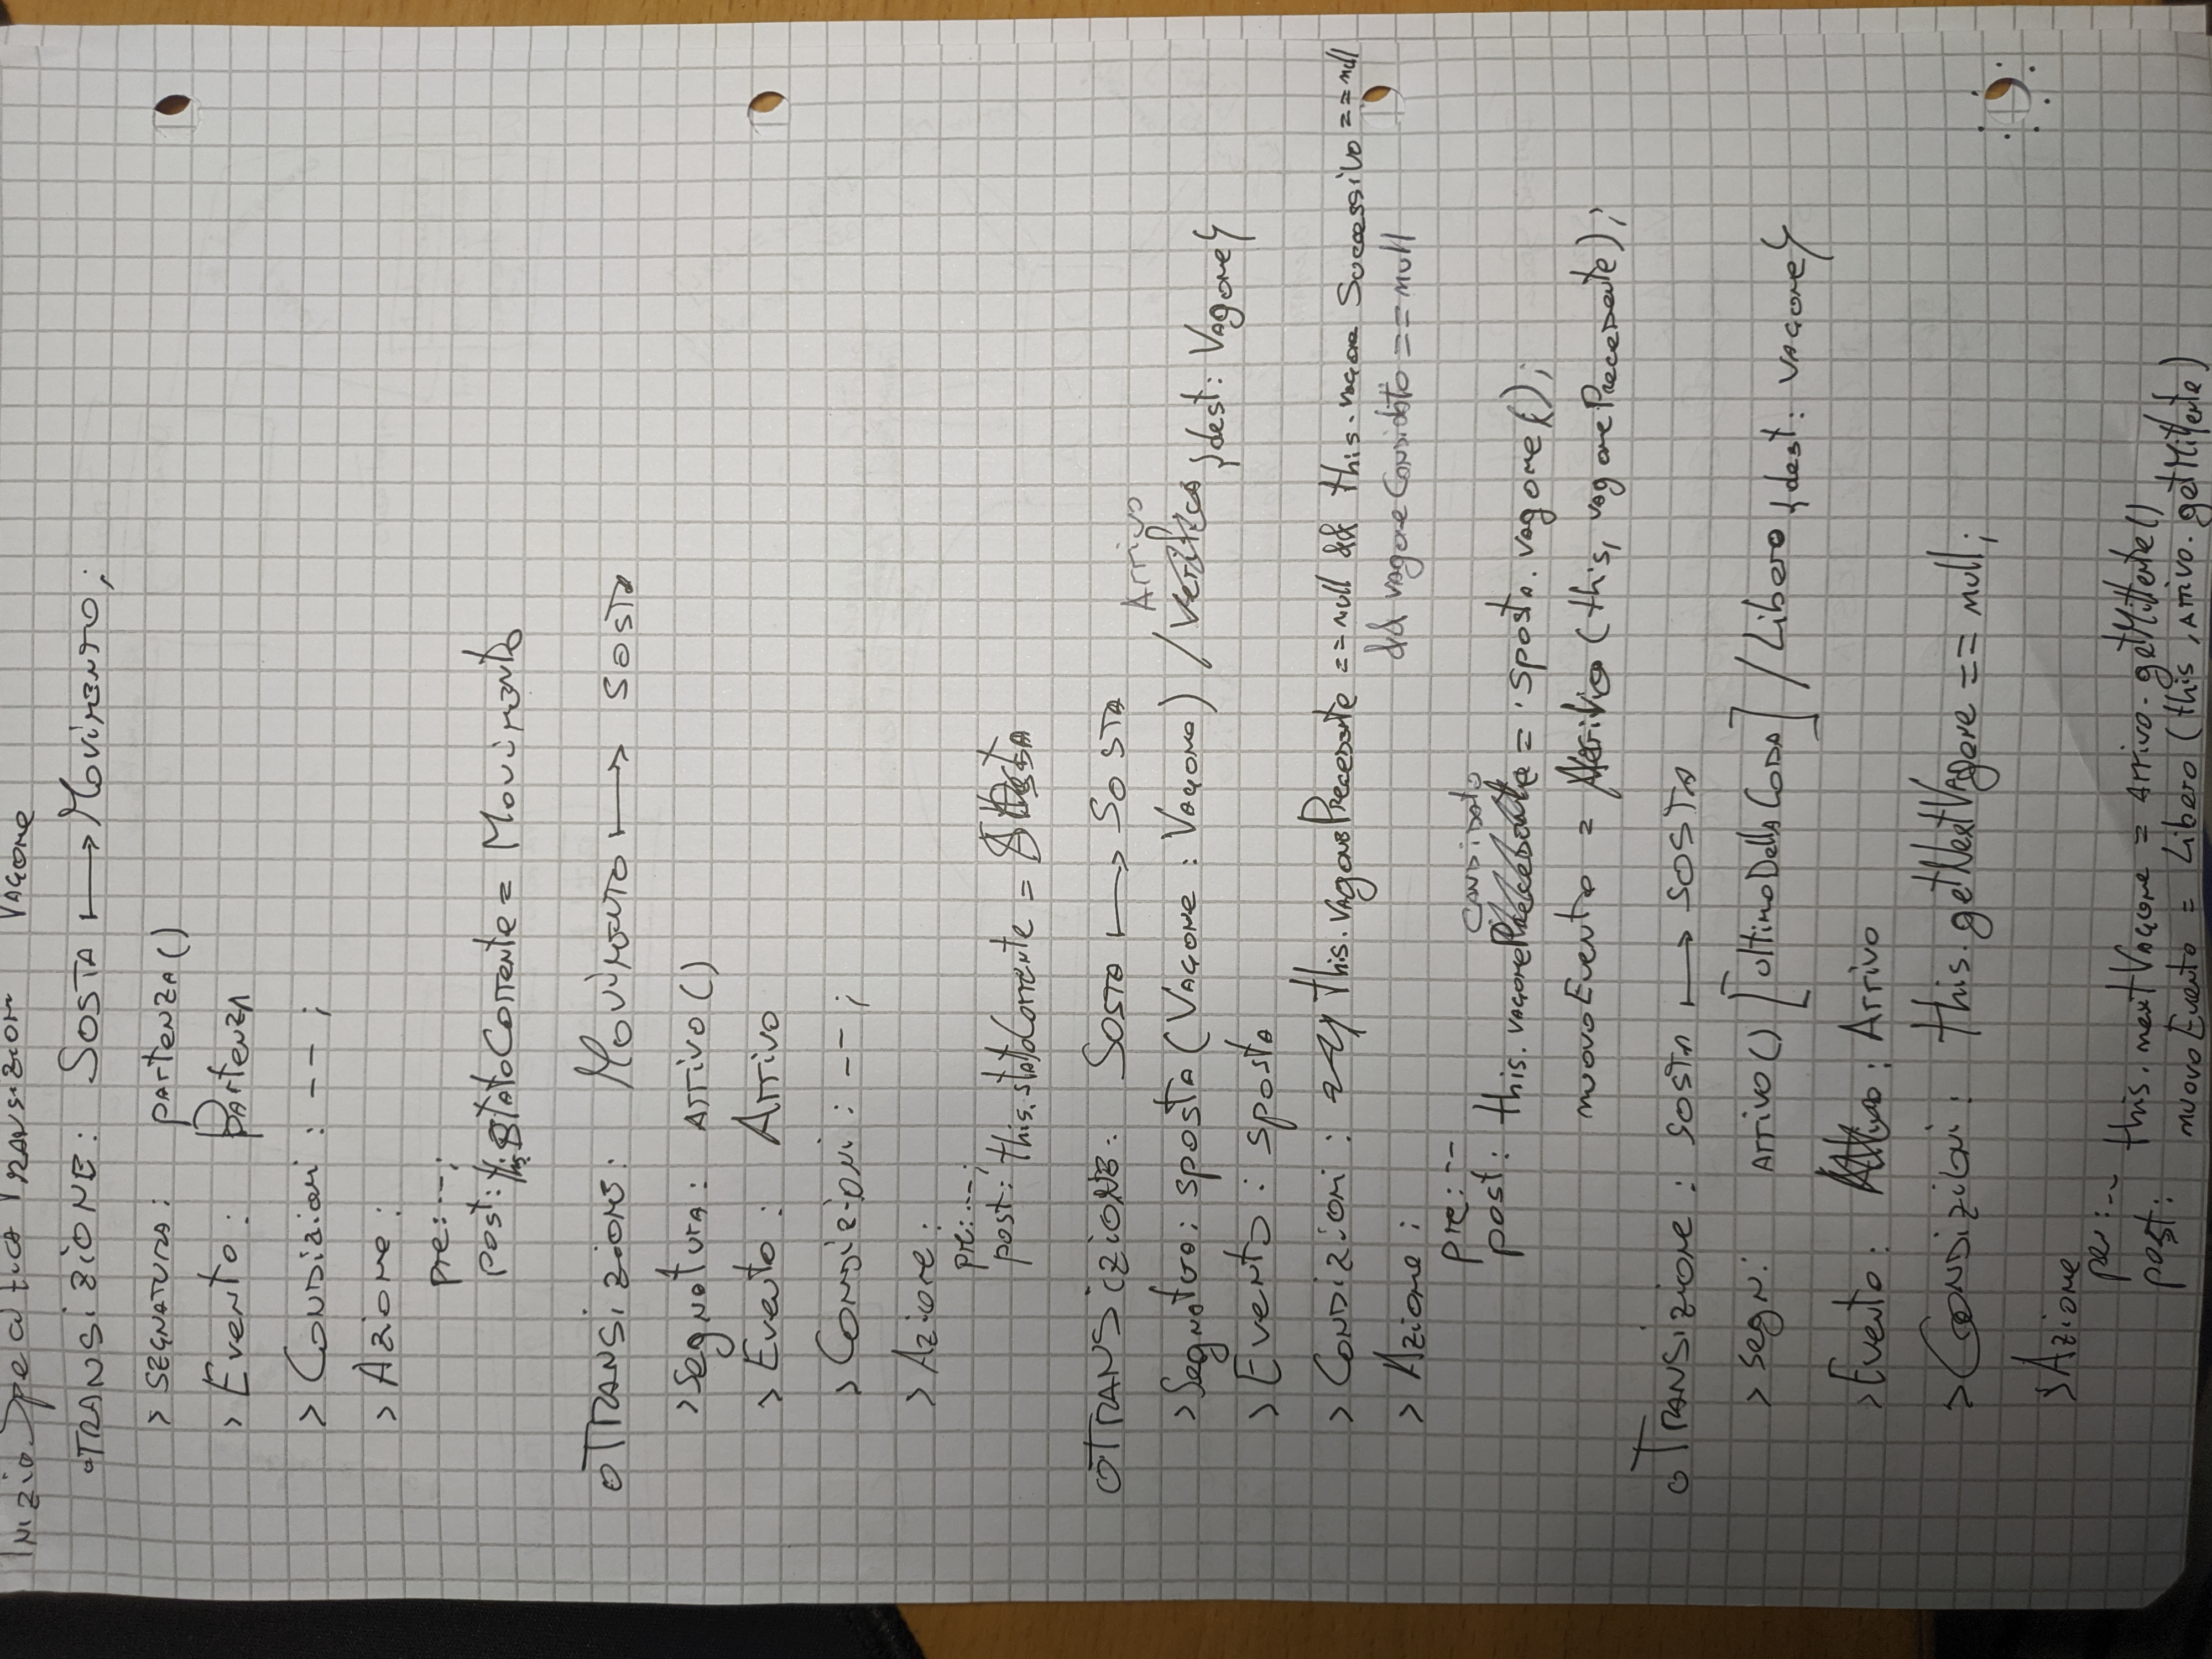 Inizio Specifica Transizioni Vagone
o TRANSIZIONE: SOSTA ↦ Movimento;
> SEGNATURA: partenza()
> Evento: Partenza
> Condizioni: -- ;
> Azione:
pre: --;
post: this.statoCorrente = Movimento
o TRANSIZIONE: Movimento ↦ SOSTA
> Segnatura: arrivo()
> Evento: Arrivo
> Condizioni: -- ;
> Azione:
pre: --;
post: this.statoCorrente =
o TRANSIZIONE: SOSTA ↦ SOSTA
Arrivo
> Segnatura: sposta(Vagone: Vagone) / {dest: Vagone}
> Evento: sposta
> Condizioni: this.vagonePrecedente == null && this.vagone Successivo == null
&& vagoneCandidato == null
> Azione:
pre: --
Candidato
post: this.vagone = sposta.vagone();
nuovoEvento = (this, vagonePrecedente);
o TRANSIZIONE: SOSTA ↦ SOSTA
> segn: arrivo() [ultimoDellaCoda] / Libero {dest: vagone}
> Evento: : Arrivo
> Condizioni: this.getNextVagone == null;
> Azione
per: --
post: this.nextVagone = arrivo.getMittente()
nuovoEvento = Libero (this, arrivo.getMittente)